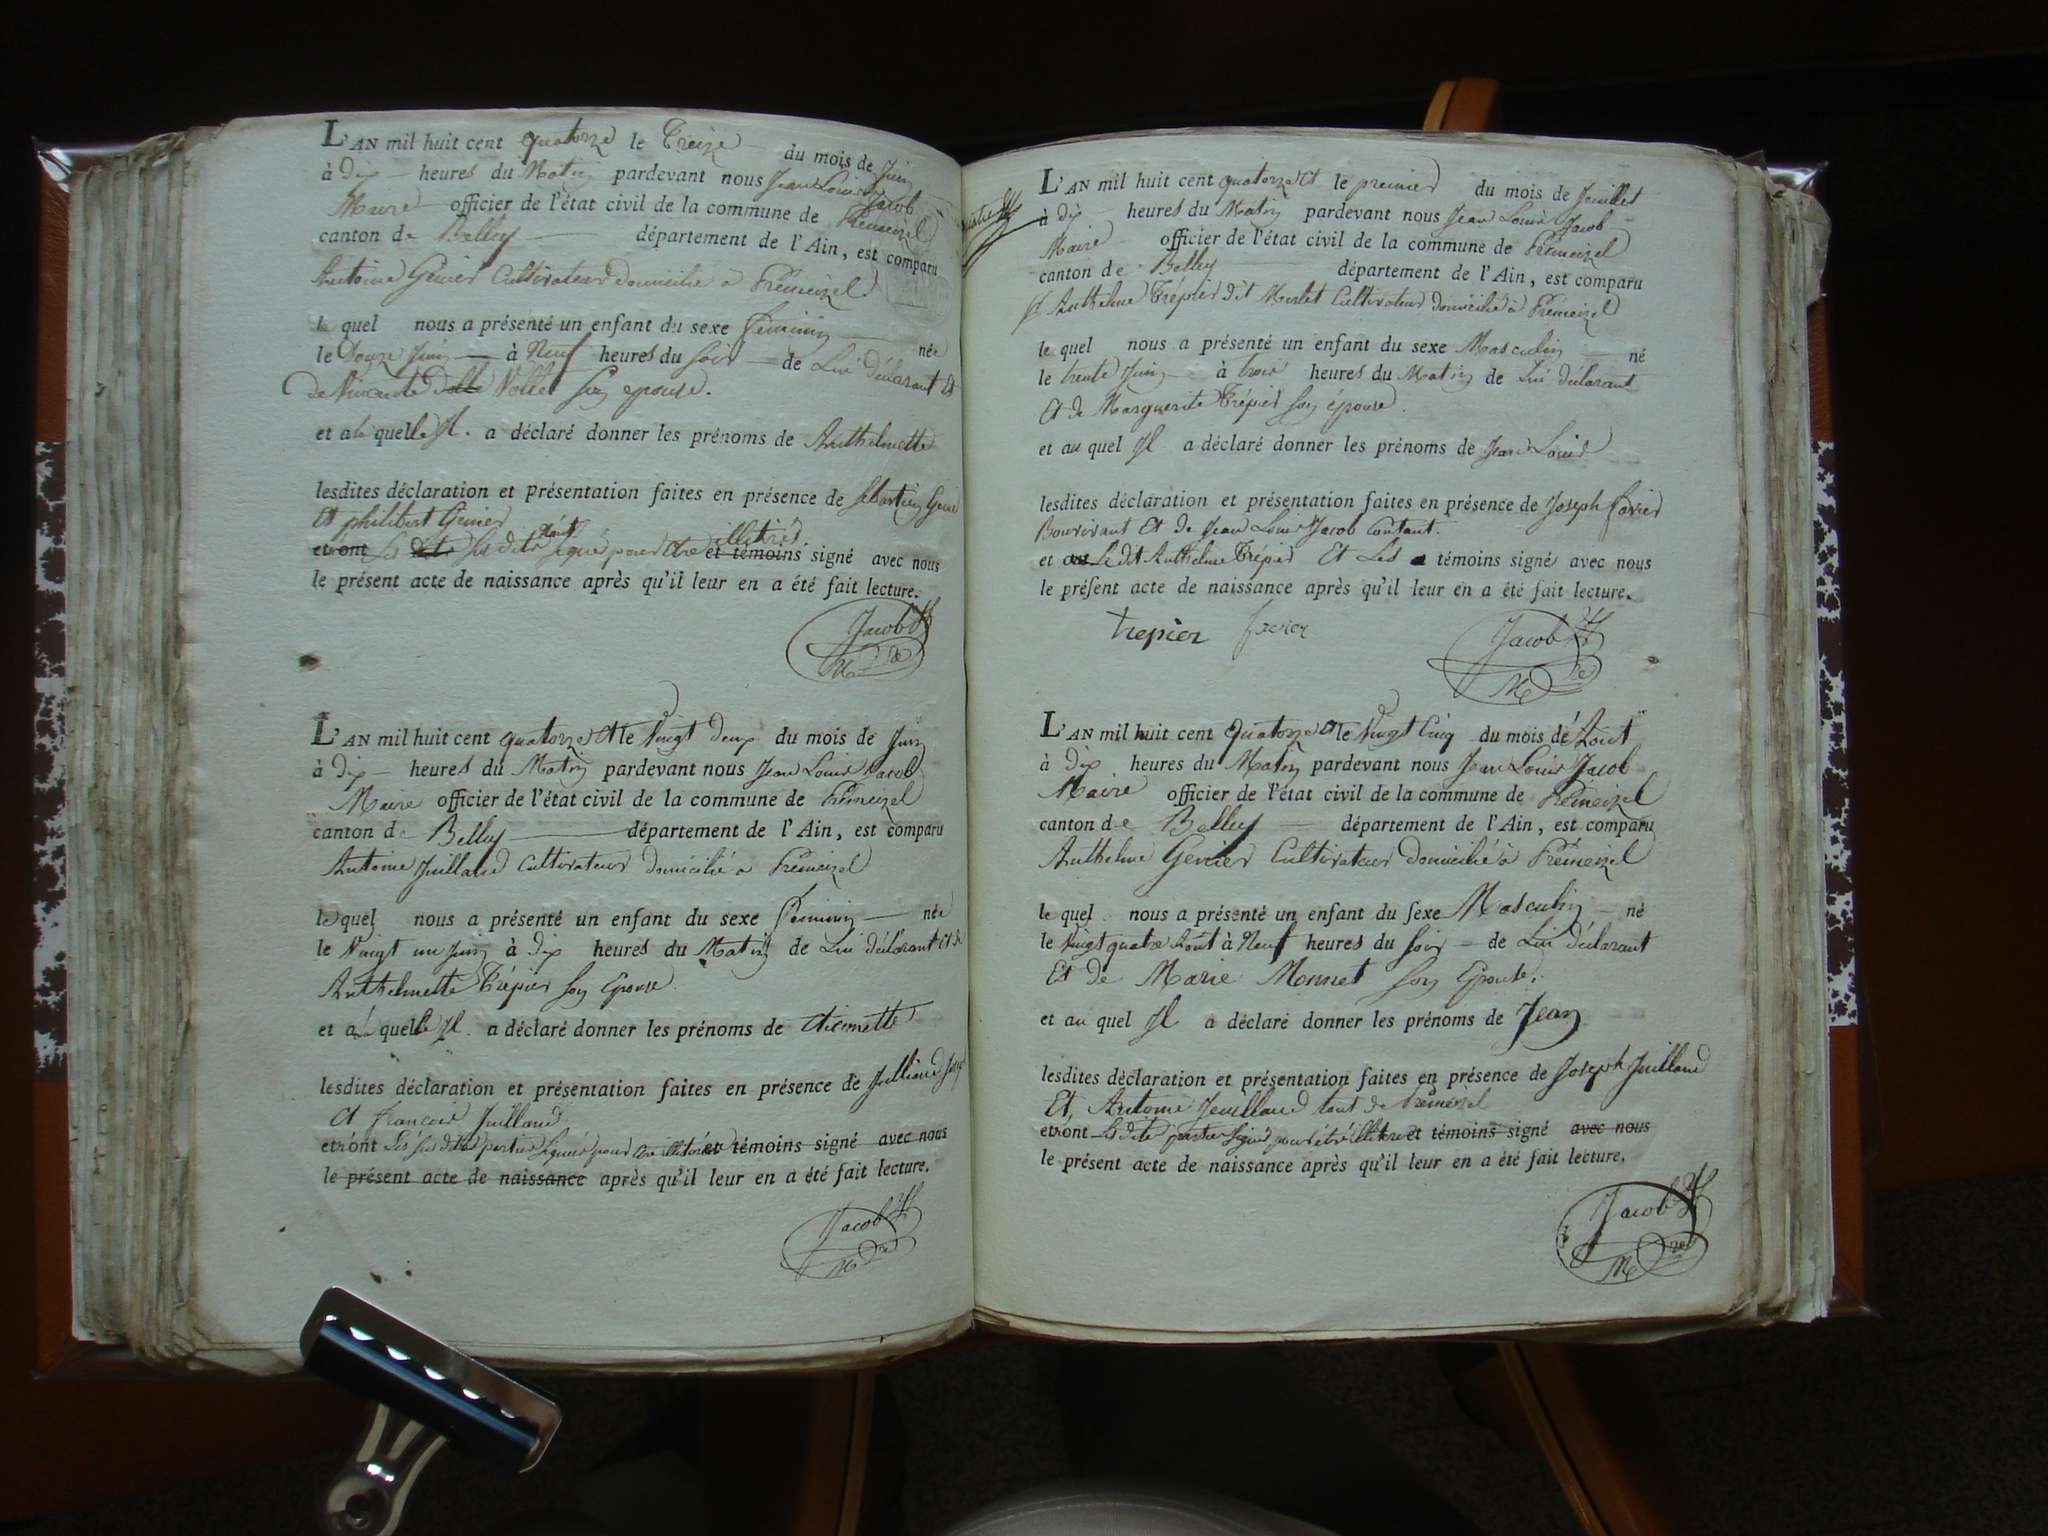 L'AN mil huit cent quatorze le Treize du mois de Juin
à dix heures du Matin pardevant nous Jean Louis Jacob
Maire officier de l'état civil de la commune de Prémeizel
canton de Belley département de l'Ain, est comparu
Antoine Genier Cultivateur domicilié à Prémeizel
le quel nous a présenté un enfant du sexe féminin née
le Douze Juin à Neuf heures du soir de Lui déclarant Et
de Vincente Vollet son epouse.
et a la quelle Jl. a déclaré donner les prénoms de Anthelmette
lesdites déclaration et présentation faites en présence de Sébastien Genier
Et philibert Genier
et ont les dits pour être illitirés et témoins signé avec nous
le présent acte de naissance après qu'il leur en a été fait lecture.
Jacob
M re
L'AN mil huit cent quatorze et le Vingt deux du mois de Juin
à dix heures du Matin pardevant nous Jean Louis Jacob
Maire officier de l'état civil de la commune de Prémeizel
canton de Belley département de l'Ain, est comparu
Antoine Juilland Cultivateur domicilié à Prémeizel
le quel nous a présenté un enfant du sexe féminin née
le Vingt un Juin à dix heures du Matin de Lui déclarant et de
Anthelmette Trépier son Epouse.
et a la quelle Jl. a déclaré donner les prénoms de
lesdites déclaration et présentation faites en présence de Julliand
et françois Juilland
et ont Les sus dites parties signés pour être et témoins signé avec nous
le présent acte de naissance après qu'il leur en a été fait lecture.
Jacob
M re
L'AN mil huit cent quatorze et le premier du mois de Juillet
à dix heures du Matin pardevant nous Jean Louis Jacob
Maire officier de l'état civil de la commune de Prémeizel
canton de Belley département de l'Ain, est comparu
Anthelme Trépier dit Merlet Cultivateur domicilié à Prémeizel
le quel nous a présenté un enfant du sexe Masculin né
le trente Juin à trois heures du Matin de Lui déclarant
Et de Marguerite Trépier son épouse.
et au quel Jl a déclaré donner les prénoms de Jean Louis
lesdites déclaration et présentation faites en présence de Joseph favier
Et de Jean Louis Jacob
et Le dit Anthelme Trépier Et Les témoins signé avec nous
le présent acte de naissance après qu'il leur en a été fait lecture.
trepier favier Jacob
M re
L'AN mil huit cent quatorze et le Vingt Cinq du mois de Aout
à dix heures du Matin pardevant nous Jean Louis Jacob
Maire officier de l'état civil de la commune de Prémeizel
canton de Belley département de l'Ain, est comparu
Anthelme Genier Cultivateur domicilié à Prémeizel
le quel nous a présenté un enfant du sexe Masculin né
le Vingt quatre Aout à Neuf heures du soir de Lui déclarant
Et de Marie Monnet son Epouse.
et au quel Jl a déclaré donner les prénoms de Jean
lesdites déclaration et présentation faites en présence de Joseph Juilland
Et, Antoine Juilland tout de Prémeizel
et ont Les dites parties signé pour être et témoins signé avec nous
le présent acte de naissance après qu'il leur en a été fait lecture.
Jacob
M re